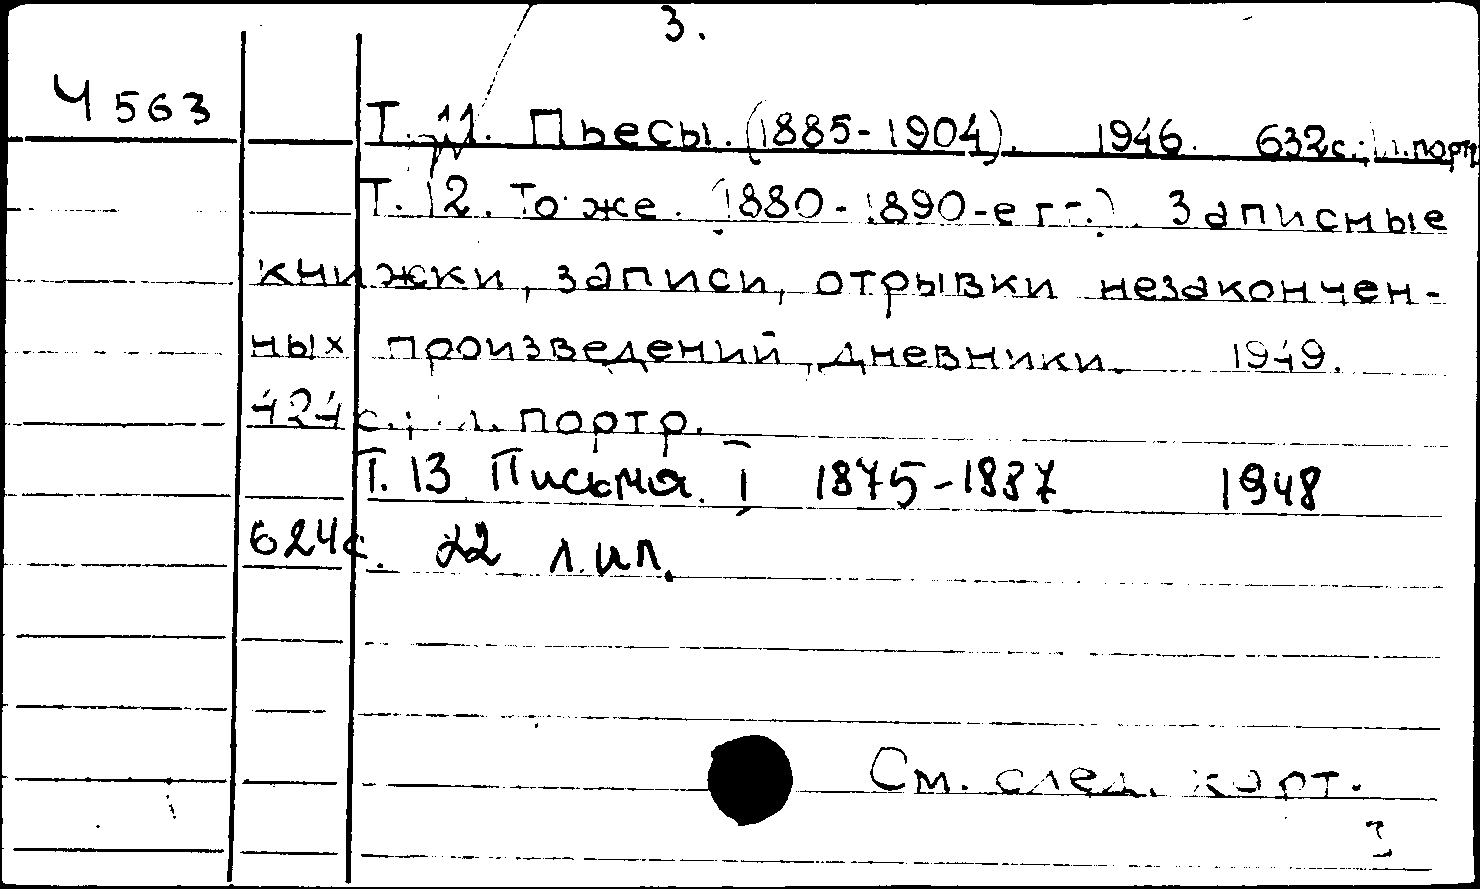 3.
Ч 563
Т. 11. Пьесы. (1885-1904). 1946. 632с.; л. портр
Т. 12. То же. (1880-1890-е гг.). Записные
книжки, записи, отрывки незакончен-
ных произведений, дневники. 1949.
424с.; л. портр.
Т. 13 Письма. I 1875-1887 1948
624с. 22 л. ил.
См. след. карт.